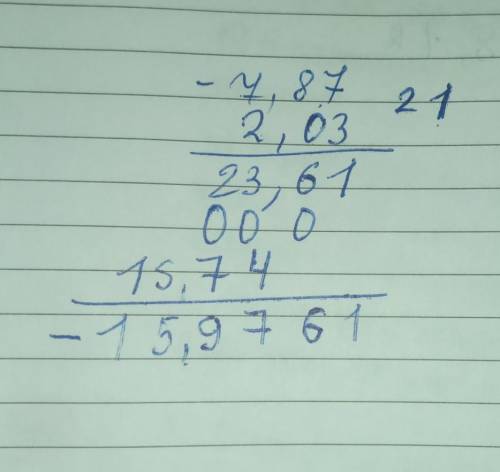 - 7,87
2,03 21
23,61
00 0
15,74
- 15,9761